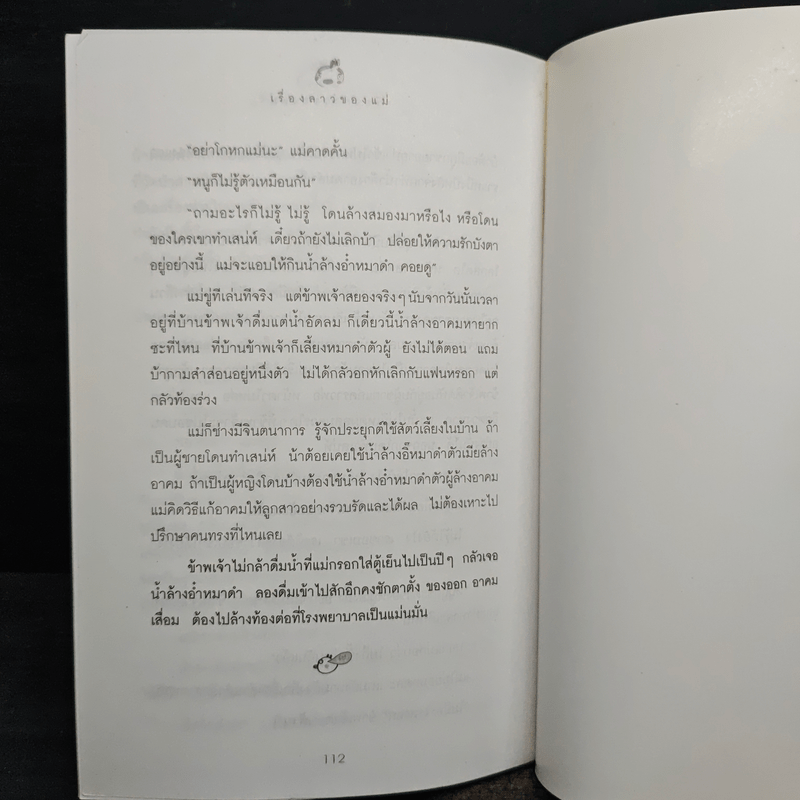 เรื่องลาวของแม่
"อย่าโกหกแม่นะ" แม่คาดคั้น
"หนูก็ไม่รู้ตัวเหมือนกัน"
"ถามอะไรก็ไม่รู้ ไม่รู้ โดนล้างสมองมาหรือไง หรือโดน
ของใครเขาทำเสน่ห์ เดี๋ยวถ้ายังไม่เลิกบ้า ปล่อยให้ความรักบังตา
อยู่อย่างนี้ แม่จะแอบให้กินน้ำล้างอ่ำหมาดำ คอยดู"
แม่ขู่ทีเล่นทีจริง แต่ข้าพเจ้าสยองจริงๆ นับจากวันนั้นเวลา
อยู่ที่บ้านข้าพเจ้าดื่มแต่น้ำอัดลม ก็เดี๋ยวนี้น้ำล้างอาคมหายาก
ซะที่ไหน ที่บ้านข้าพเจ้าก็เลี้ยงหมาดำตัวผู้ ยังไม่ได้ตอน แถม
บ้ากามสำส่อนอยู่หนึ่งตัว ไม่ได้กลัวอกหักเลิกกับแฟนหรอก แต่
กลัวท้องร่วง
แม่ก็ช่างมีจินตนาการ รู้จักประยุกต์ใช้สัตว์เลี้ยงในบ้าน ถ้า
เป็นผู้ชายโดนทำเสน่ห์ น้าต้อยเคยใช้น้ำล้างอิ๊หมาดำตัวเมียล้าง
อาคม ถ้าเป็นผู้หญิงโดนบ้างต้องใช้น้ำล้างอ่ำหมาดำตัวผู้ล้างอาคม
แม่คิดวิธีแก้อาคมให้ลูกสาวอย่างรวบรัดและได้ผล ไม่ต้องเหาะไป
ปรึกษาคนทรงที่ไหนเลย
ข้าพเจ้าไม่กล้าดื่มน้ำที่แม่กรอกใส่ตู้เย็นไปเป็นปีๆ กลัวเจอ
น้ำล้างอ่ำหมาดำ ลองดื่มเข้าไปสักอึกคงชักตาตั้ง ของออก อาคม
เสื่อม ต้องไปล้างท้องต่อที่โรงพยาบาลเป็นแม่นมั่น
112